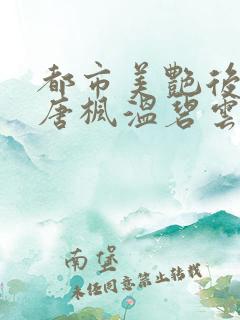 都市美艷後
唐楓溫碧雲
南堡
未经同意禁止转载